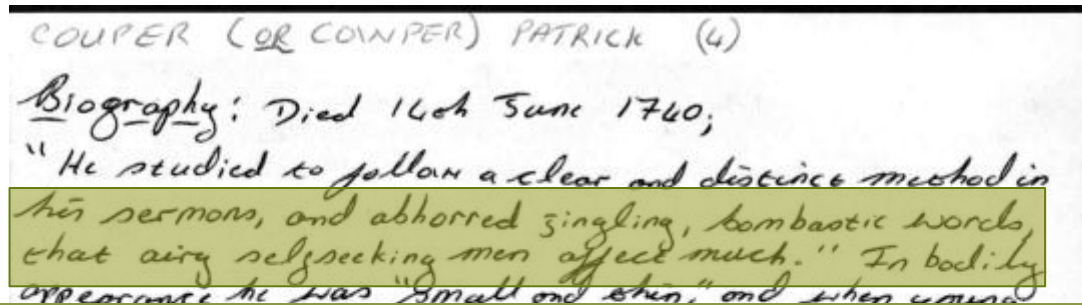 COUPER (OR COWPER) PATRICK (4)
Biography: Died 14th June 1740;
"He studied to follow a clear and distinct method in
his sermons, and abhorred jingling, bombastic words,
that airy selfseeking men affect much." In bodily
appearance he was "small and thin," and when young